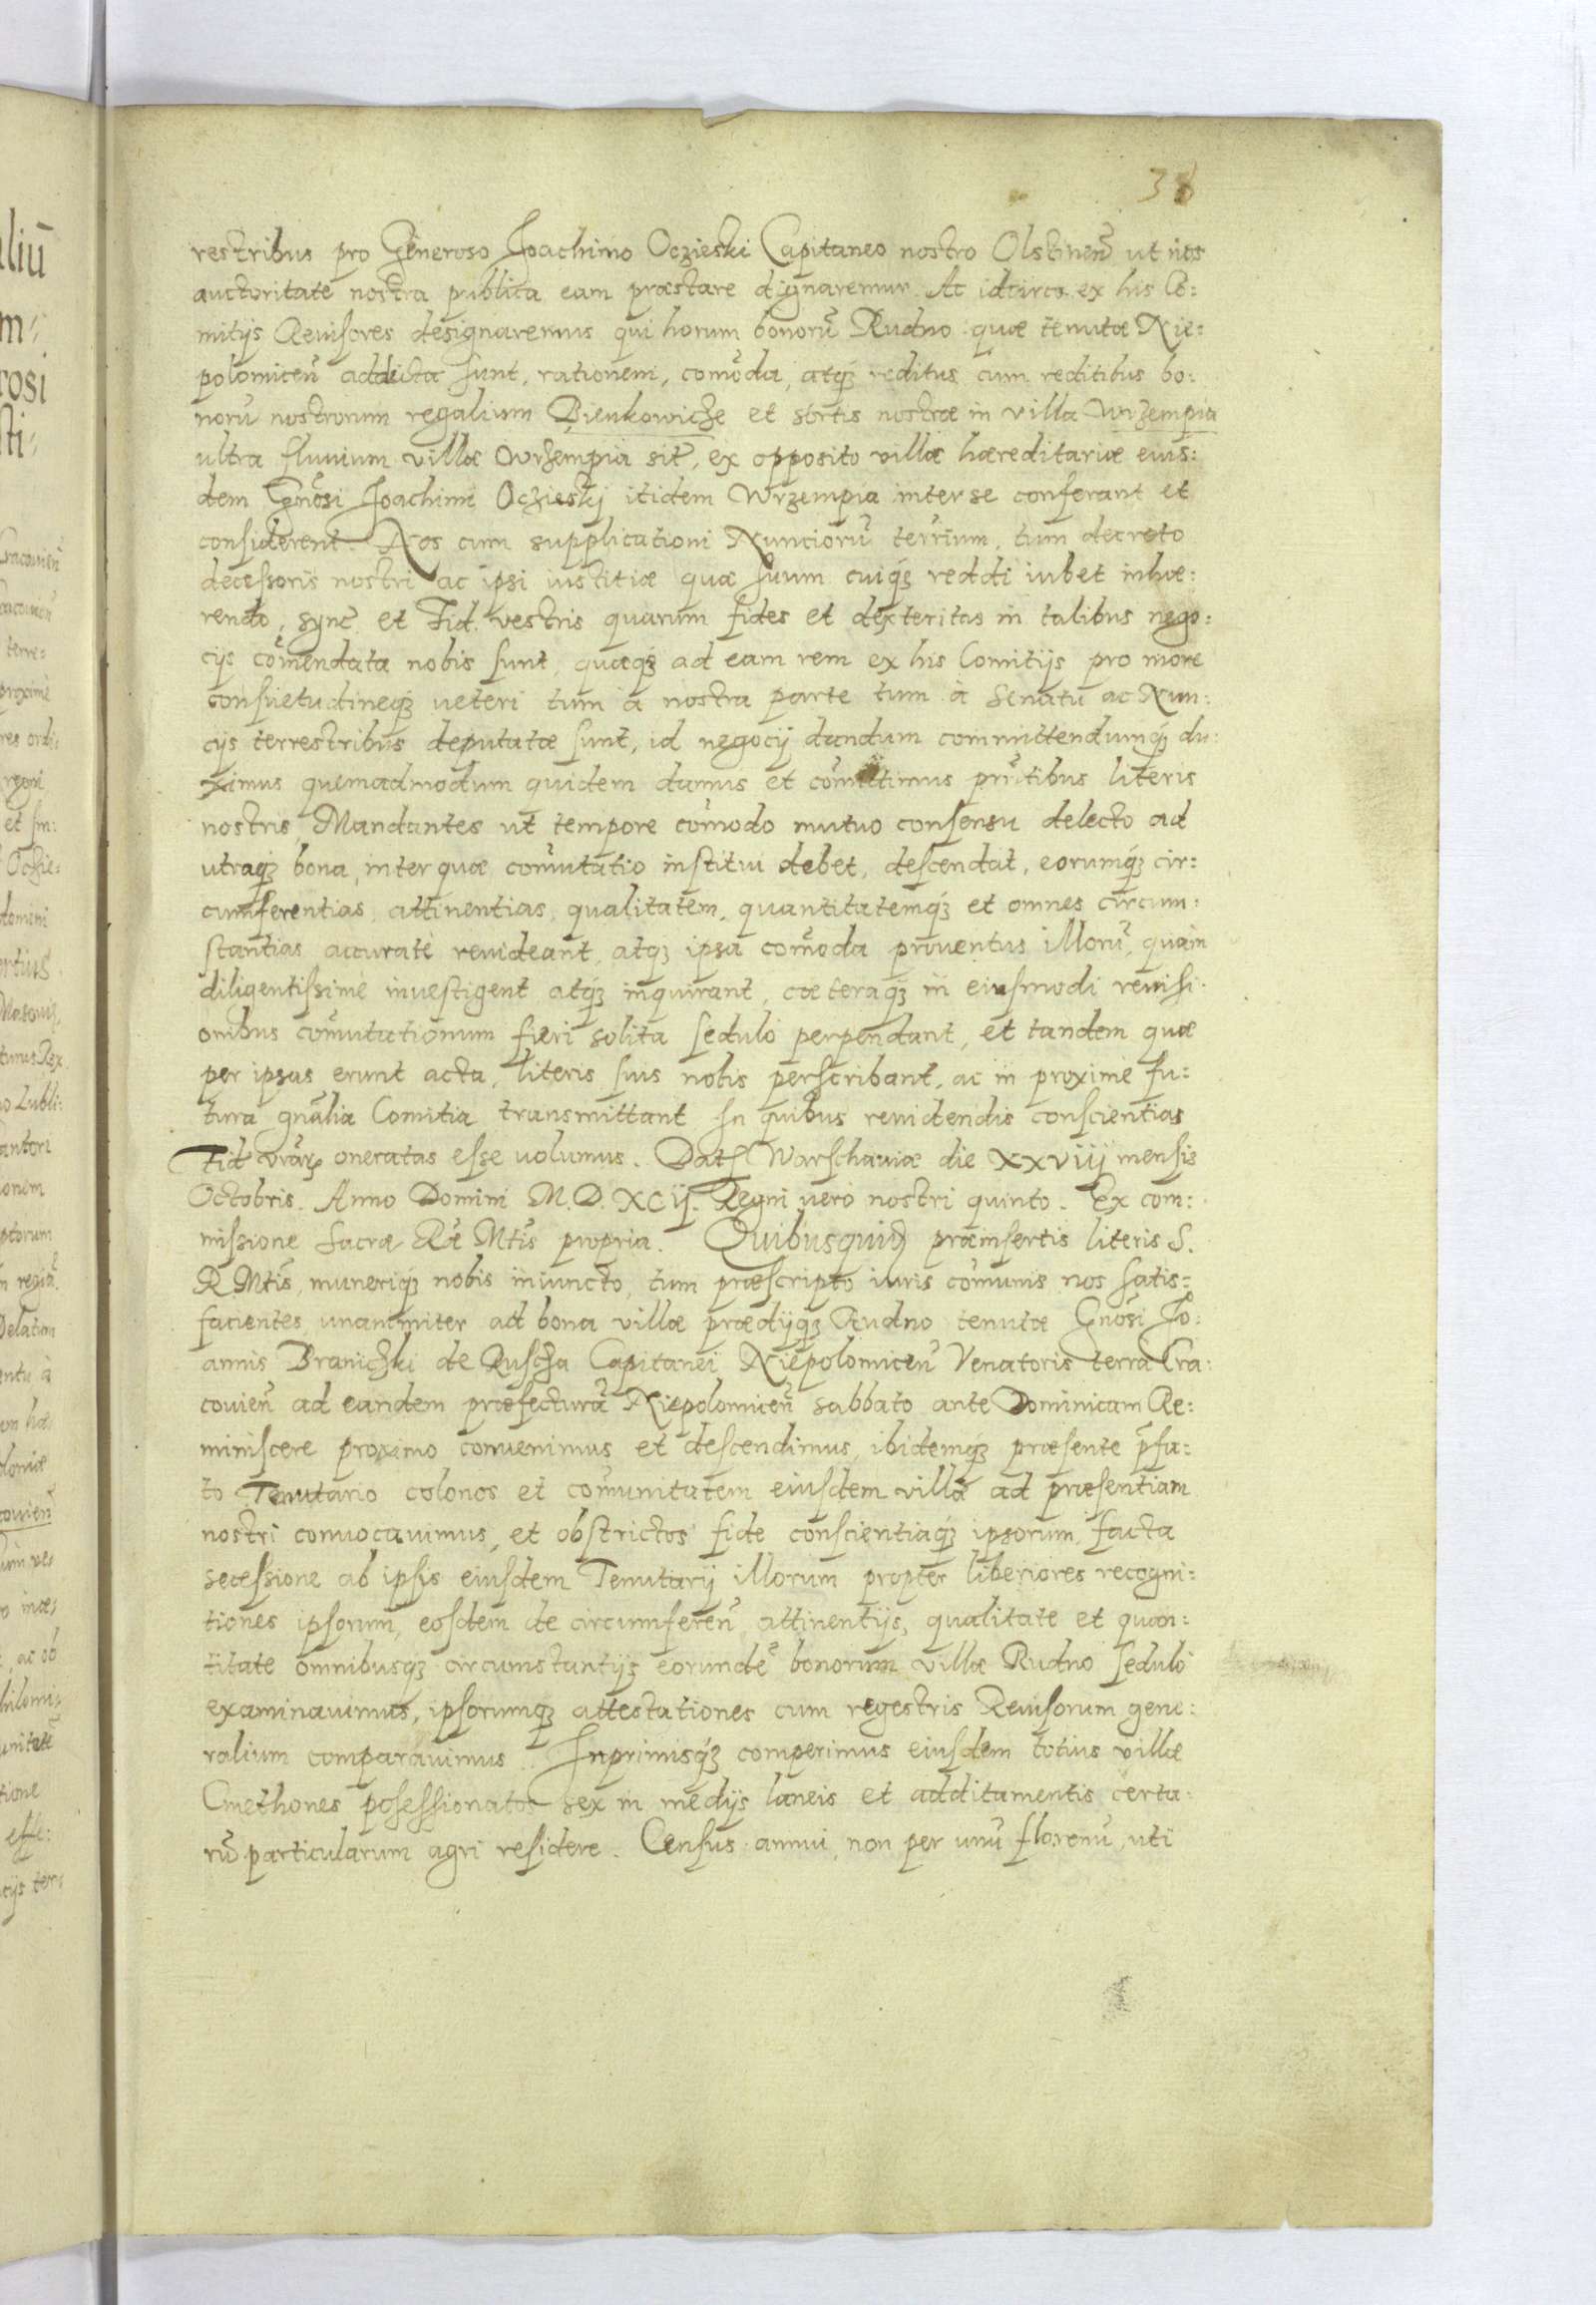 38
restribus pro Generoso Joachimo Oczieski Capitaneo nostro Olstinen̄ ut nos
auctoritate nostra publica eam præstare dignaremur. Ac idcirco ex his Co:
mitijs Reuisores designaremus qui horum bonorū Rudno quæ tenutæ Nie:
polomicen̄ addicta sunt, rationem, com̄oda, atq₃ reditus cum reditibus bo:
norū nostrorum regalium Bienkowicze et sortis nostræ in villa Wrzempia
ultra fluuium villæ Wrzempia sitæ, ex opposito villæ hæreditariæ eius:
dem Gn̄osi Joachimi Oczieskj itidem Wrzempia inter se conferant et
considerent. Nos cum supplicationi Nunciorū terrium, tum decreto
decessoris nostri ac ipsi iustitiæ quæ suum cuiq₃ reddi iubet inhæ:
rendo, syncē et Fid. vestris quarum fides et dexteritas in talibus nego:
cijs com̄endata nobis sunt, quæq₃ ad eam rem ex his Comitijs pro more
consuetudineq₃ ueteri tum à nostra parte tum à Senatu ac Nun:
cijs terrestribus deputatæ sunt, id negocij dandum committendumq₃ du:
ximus quemadmodum quidem damus et com̄ittimus prn̄tibus literis
nostris, Mandantes ut tempore com̄odo mutuo consensu delecto ad
utraq₃ bona, inter quæ com̄utatio institui debet, descendat, eorumq₃ cir:
cumferentias, attinentias, qualitatem, quantitatemq₃ et omnes circum:
stantias accuratè reuideant, atq₃ ipsa com̄oda prouentus illorū, quàm
diligentissimè inuestigent atq₃ inquirant, cæteraq₃ in eiusmodi reuisi:
onibus com̄utationum fieri solita sedulò perpendant, et tandem quæ
per ipsas erunt acta, literis suis nobis perscribant, ac in proximè fu:
tura gn̄alia Comitia transmittant In quibus reuidendis conscientias
Fid vrārꝝ oneratas esse uolumus. Dat Warschauiæ die XXVIIJ mensis
Octobris. Anno Domini M.D.XCIJ. Regni uerò nostri quinto. Ex com:
missione Sacræ Ræ Mtīs propria. Quibusquid præinsertis literis S.
R Mtīs, muneriq₃ nobis iniuncto, tum præscripto iuris com̄unis nos satis:
facientes, unanimiter ad bona villæ prædijq₃ Rudno tenutæ Gn̄osi Jo:
annis Braniczki de Ruscza Capitanei Niepolomicen̄ Venatoris terræ Cra:
couien̄ ad eandem præfecturā Niepolomicen̄ sabbato ante Dominicam Re:
miniscere proximo conuenimus et descendimus, ibidemq₃ præsente p̄fa:
to Tenutario colonos et com̄unitatem eiusdem villæ ad præsentiam
nostri conuocauimus, et obstrictos fide conscientiaq₃ ipsorum, facta
secessione ab ipsis eiusdem Tenutarij illorum propter liberiores recogni:
tiones ipsorum, eosdem de circumferen̄ attinentijs, qualitate et quan:
titate omnibusq₃ circumstantijs eorundē bonorum villæ Rudno sedulò
examinauimus, ipsorumq₃ attestationes cum regestris Reuisorum gene:
ralium comparauimus. Inprimisq₃ comperimus eiusdem totius villæ
Cmethones posessionatos sex in medijs laneis et additamentis certa:
rū particularum agri residere. Census annui, non per unū florenū, uti